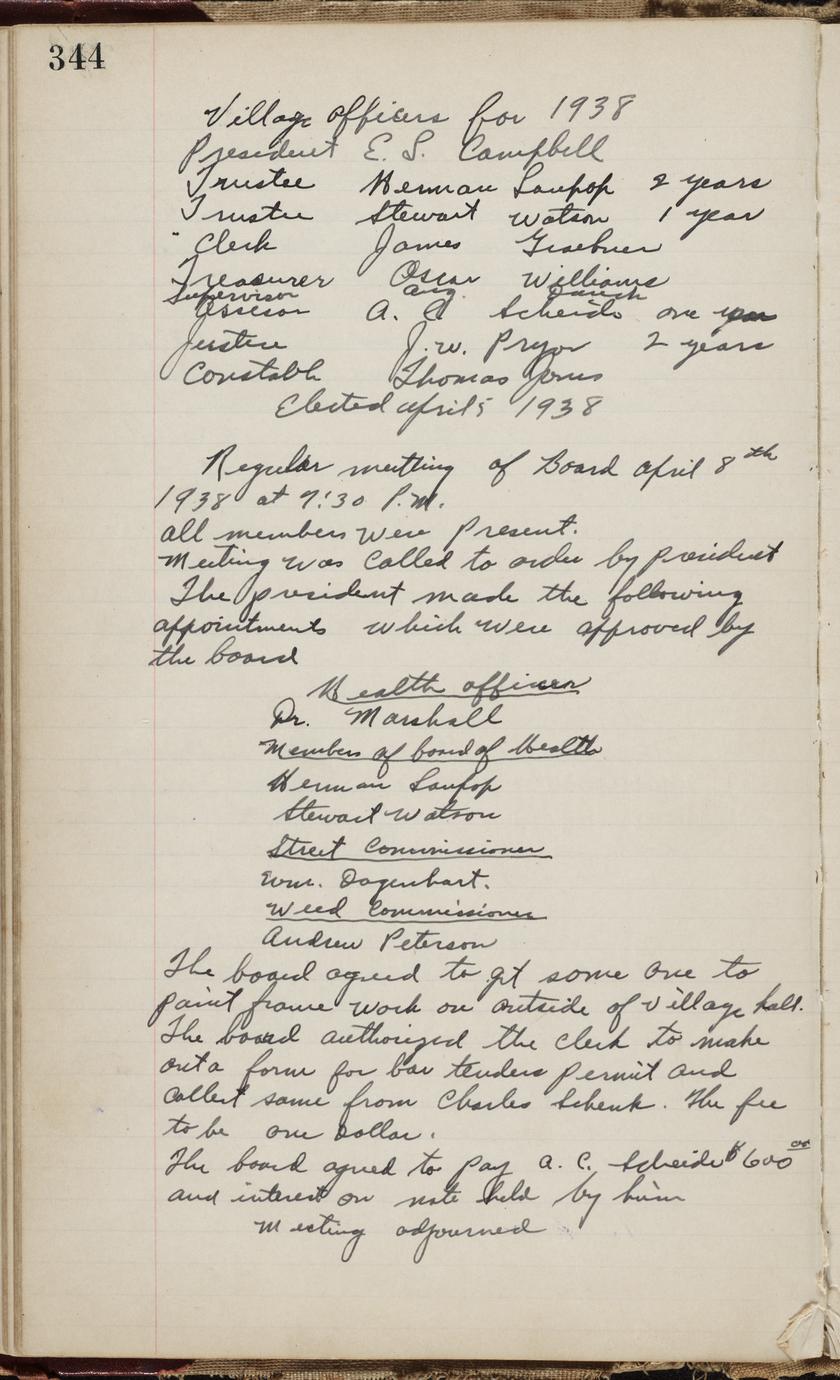 344
Village officers for 1938
President E. S. Campbell
Trustee Herman Saupop 2 years
Trustee Stewart Watson 1 year
Clerk James Graebner
Treasurer Oscar Williams
Supervisor Aug.
Assesor A. C Scheide one year
Justice J. W. Pryor 2 years
Constable Thomas Jones
Elected april 5 1938
Regular meeting of Board april 8th
1938 at 7:30 P.M.
all members were present.
Meeting was called to order by president
The president made the following
appointments which were approved by
the board
Health officer
Dr. Marshall
Members of board of Health
Herman Saupop
Stewart Watson
Street Commissioner
Wm. Dagenhart.
Weed Commissioner
Andrew Peterson
The board agreed to get some one to
paint frame work on outside of village hall.
The board authorized the clerk to make
out a form for bar tenders permit and
collect same from Charles Schenk. The fee
to be one Dollar.
The board agreed to pay A. C. Scheide $600 00
and interest on note held by him
Meeting adjourned